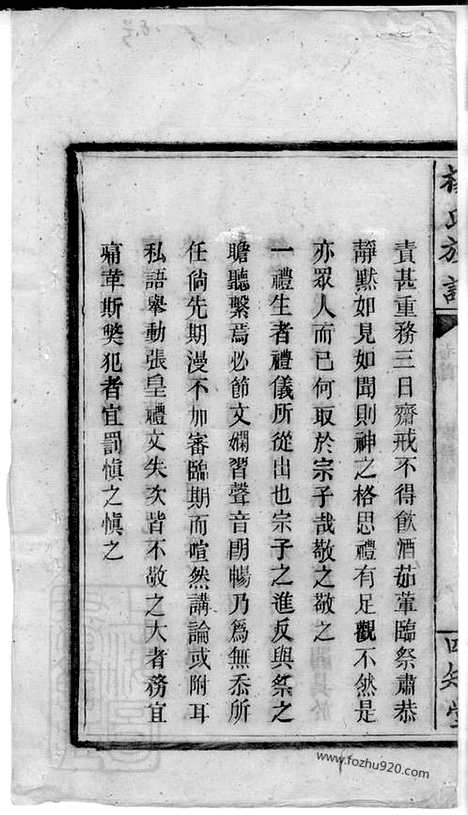 楊氏族譜
四知堂
責甚重務三日齋戒不得飲酒茹葷臨祭肅恭
靜默如見如聞則神之格思禮有足觀不然是
亦眾人而已何取於宗子哉敬之敬之
一禮生者禮儀所從出也宗子之進反與祭之
瞻聽繫焉必節文嫻習聲音朗暢乃為無忝所
任倘先期漫不加審臨期而喧然講論或附耳
私語舉動張皇禮文失次皆不敬之大者務宜
痛革斯獘犯者宜罰慎之慎之
www.fozhu920.com